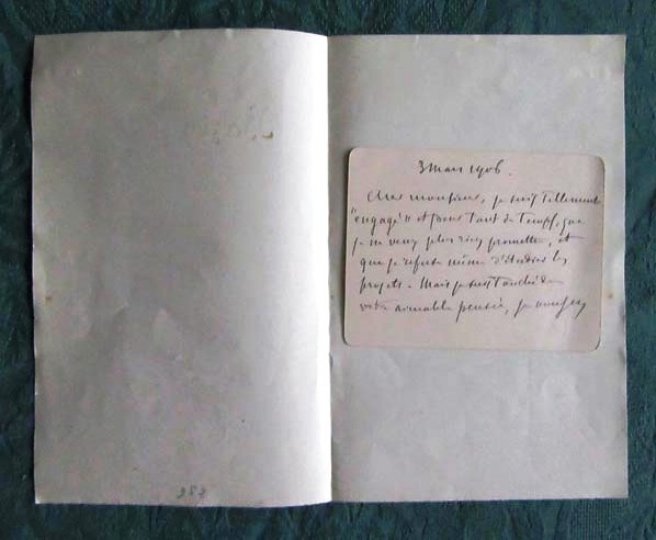 3 mars 1906.
Cher monsieur, je suis tellement
"engagé" et pour tant de temps, que
je ne veux plus rien promettre, et
que je refuse même d'étudier les
projets. Mais je suis touché de
votre aimable pensée, je vous
287